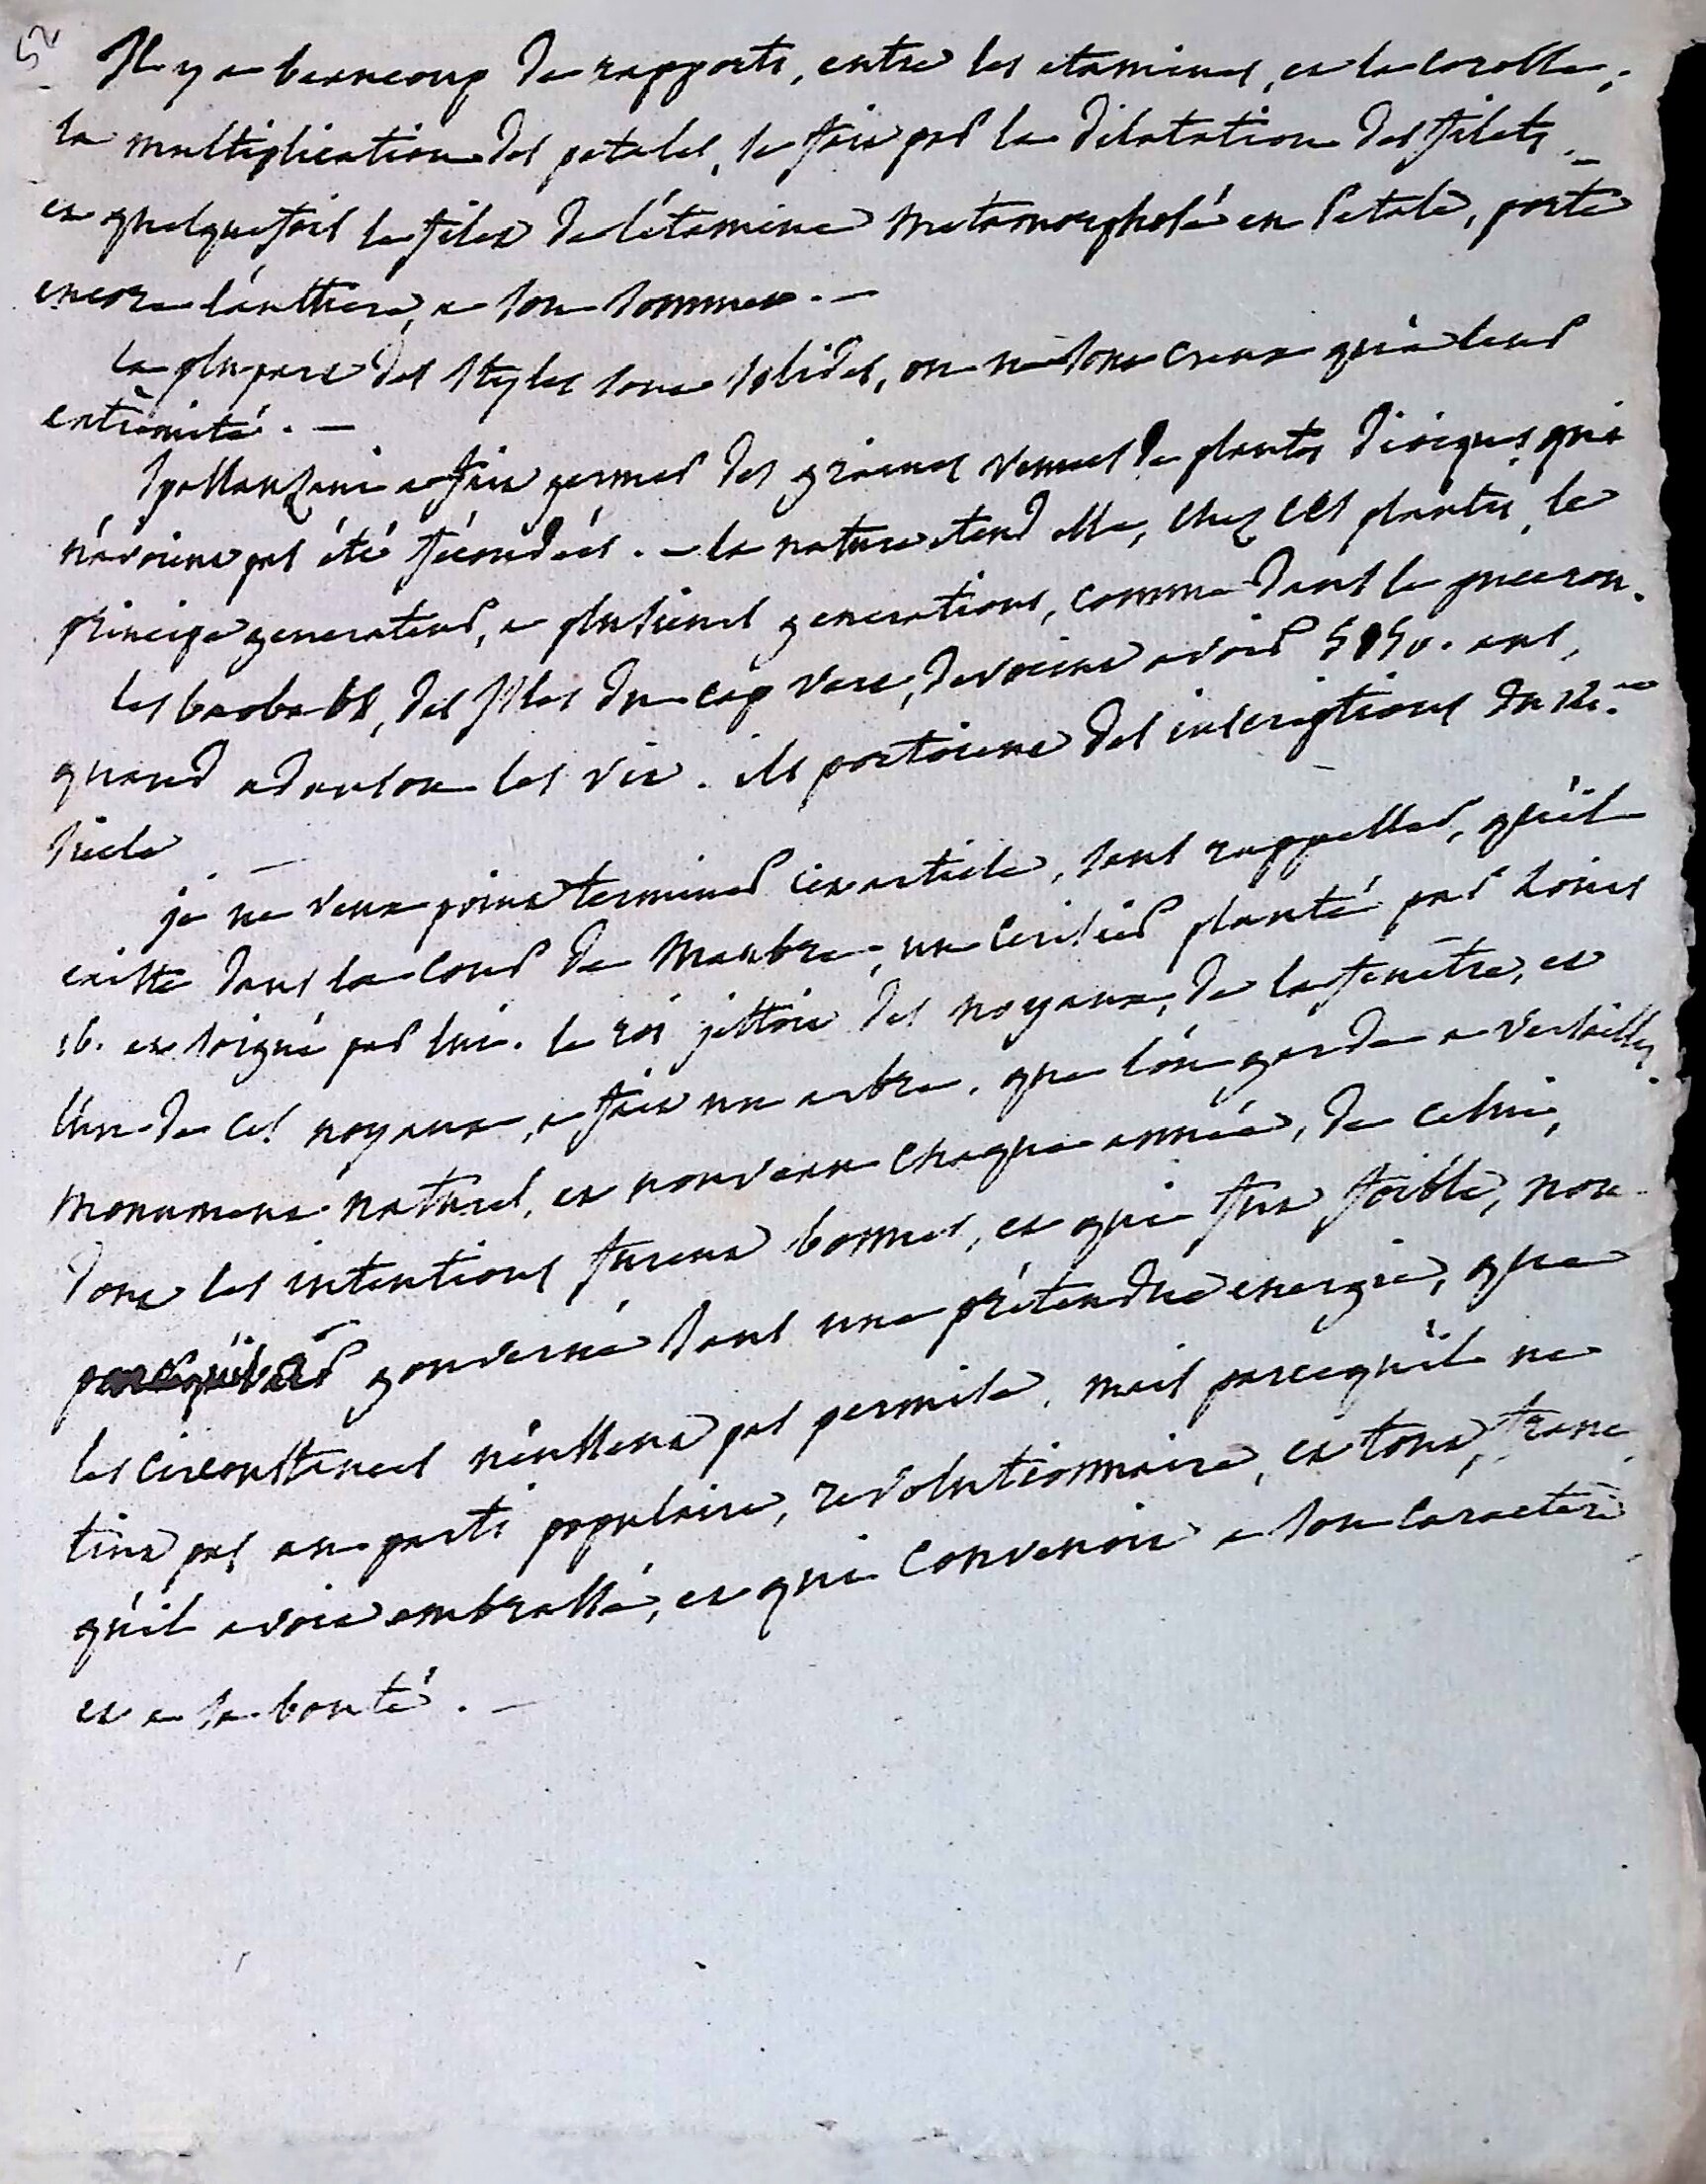 52
Il y a beaucoup de rapports, entre les etamines, et la corolle,
la multiplication des petales, se fait par la dilatation des filets.
et quelquefois le filet de l'étamine metamorphosé en Petale, porte
encore l'anthere, a son sommet. —
La plupart des styles sont solides, ou ne sont creux qu'à leur
extrêmité. —
Spallanzani a fait germer des graines venues de plantes dioiques, qui
n'avoient pas été fécondées. — la nature etend elle, chez ces plantes, le
principe generateur, a plusieurs generations, comme dans le puceron.
Les baobabs, des Isles du cap vert, devoient avoir 5150. ans,
quand adanson les vit. ils portoient des inscriptions du
siecle —
je ne veux point terminer cet article, sans rappeller, qu'il
existe dans la cour de Marbre, un cerisier planté par Louis
16. et soigné par lui. le roi jettoit des noyaux, de la fenêtre, et
l'un de ces noyaux, a fait un arbre, que l'on garde a Versailles
monument naturel, et nouveau chaque année, de celui,
dont les intentions furent bonnes, et qui fut foible, non
gouverné dans une prétendue energie, que
les circonstances n'eussent pas permise, mais parcequ'il ne
tint pas au parti populaire, revolutionnaire, et tout franc
qu'il avoit embrassé, et qui convenoit a son caractere
et a sa bonté. —